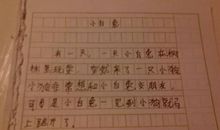 小白兔
有一天，一只小白兔在树
林里玩耍，突然来了一只小狗
小狗非常想和小白兔交朋友，
可是小白兔一见到小狗就马
上跑开了。